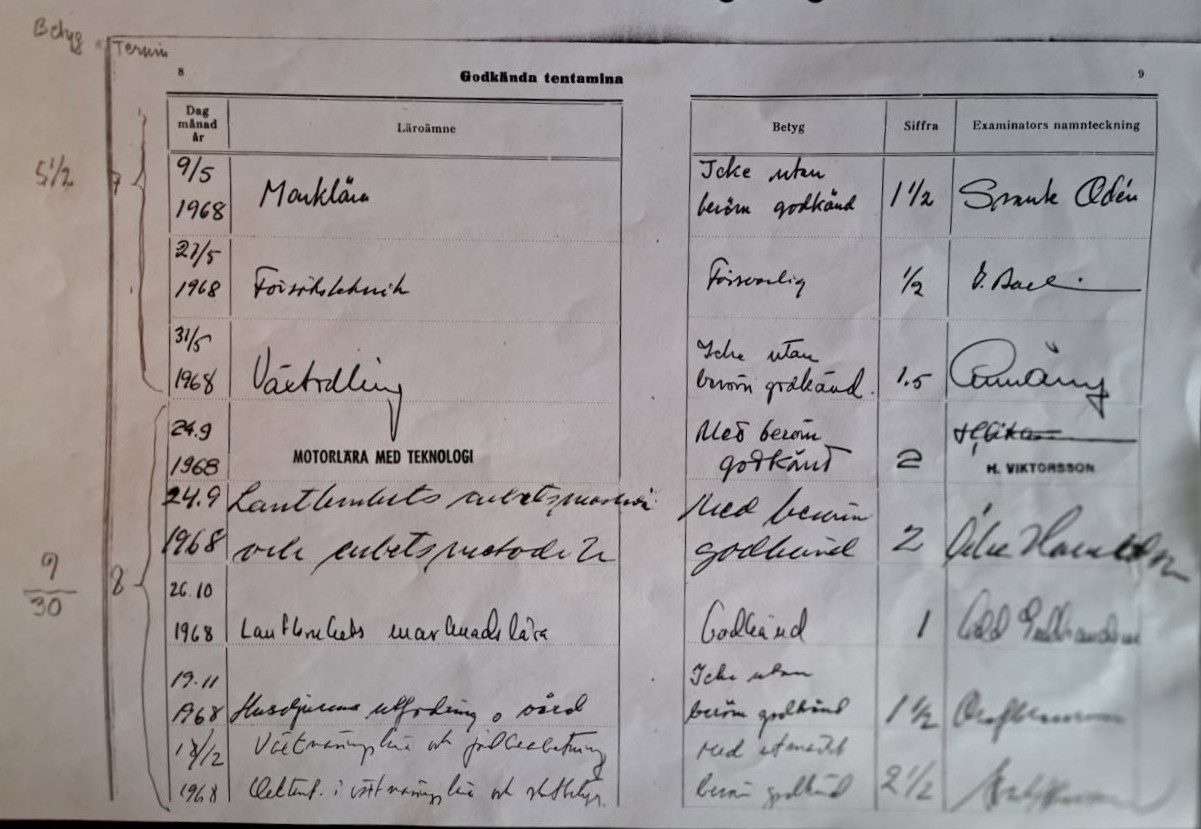 Betyg Termin
8 Godkända tentamina 9
Dag månad år Läroämne Betyg Siffra Examinators namnteckning
9/5 Icke utan
5 1/2 7 1968 Marklära beröm godkänd 1 1/2 Svante Odén
27/5
1968 Försöksteknik Försvarlig 1/2
31/5 Icke utan
1968 Växtodling beröm godkänd. 1.5
24.9 Med beröm
1968 MOTORLÄRA MED TEKNOLOGI godkänd 2 H. VIKTORSSON
24.9 Lantbrukets arbetsmaskin Med beröm
1968 och arbetsmetoder godkänd 2
9/30 8
26.10
1968 Lantbrukets marknadslära Godkänd 1
19.11 Icke utan
1968 Husdjurens utfodring o vård beröm godkänd 1 1/2
/12 Växtnäringslära och jordbearbetning Med utmärkt
1968 i växtnäringslära och beröm godkänd 2 1/2